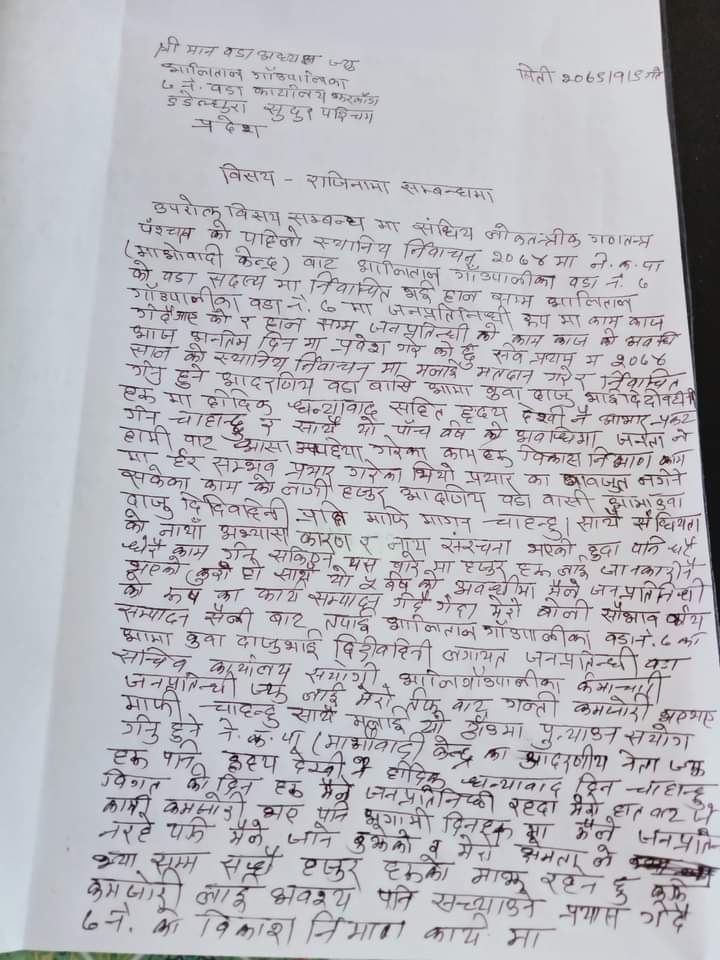 श्री मान वडा अध्यक्ष ज्यु
आलिताल गाँउपालिका
७ नं. वडा कार्यालय
डडेल्धुरा सुदुर पश्चिम
प्रदेश
मिती
विसय - राजिनामा सम्बन्धमा
उपरोक्त विसय सम्बन्ध मा संघिय लोकतन्त्रीक गणतन्त्र
पश्चात को पहिलो स्थानिय निर्वाचन २०७४ मा ने.क.पा
(माओवादी केन्द्र) बाट आलिताल गाँउपालीका वडा नं. ७
को वडा सदस्य मा निर्वाचित भई हाल सम्म आलिताल
गाँउपालीका वडा नं. ७ मा जनप्रतिनिधी रूप मा काम काज
गर्दै आए को र हाल सम्म जनप्रतिन्धी को काम काज को अवधि
आज अन्तिम दिन मा प्रवेश गरे को छु सर्व प्रथम म २०७४
साल को स्थानिय निर्वाचन मा मलाई मतदान गरेर निर्वाचित
गर्नु हुने आदरणिय वडा बासि आमा बुवा दाजु भाई
हरू मा हार्दिक धन्यावाद सहित हृदय देखी नै आभार प्रकट
गर्न चाहान्छु र साथै यो पाँच वर्ष को अवधिमा जनता ले
हामी बाट आसा गरेका काम हरू विकास निर्माण काम
मा हर सम्भव प्रयास गरेका थियो प्रयास का बावजुत
सकेका काम को लागी हजुर आदणिय वडा वासी आमा बुवा
दाजु दिदिवहिनी प्रति माफि माग्न चाहन्छु। साथै संघियता
को नायाँ अभ्यास कारण र नया संरचना भएको हुदा पनि
धेरै काम गर्न सकिएन यस बारे मा हजुर हरू लाई जानकारी नै
भएको कुरा हो साथै यो ५ बर्ष को अवधीमा मैले जनप्रतिनिधी
को रूप का कार्य सम्पादन गर्दै गर्दा मेरो बोली सौभाव कार्य
सम्पादन सैली बाट तपाई आलिताल गाँउपालीका वडा नं. ७ का
आमा बुवा दाजुभाई दिदीवहिनी लगायत जनप्रतिन्धी वडा
सचिव कार्यालय सयोगी आलिगाँउपालीका कर्मचारी
जनप्रतिन्धी ज्यु लाई मेरो तर्फ बाट गल्ती कमजोरी
माफी चाहन्छु साथै मलाई यो ठाँउमा पुर्‍याउन सयोग
गर्नु हुने ने.क.पा (माओवादी) केन्द्र का आदरणीय नेता ज्यु
हरू पनि हृदय देखी नै हार्दिक धन्यावाद दिन चाहान्छु
विगत का दिन हरू मैले जनप्रतिनिधी रहदा मेरो हात बाट
कमी कमजोरी भए पनि अगामी दिनहरू मा मैले जनप्रति-
नरहे पनि मैले जाने बुझेको र मेरो क्षमता ले
भ्या सम्म सधै हजुर हरूको माझ रहने छु
कमजोरी लाई अवश्य पनि सच्याउने प्रयास गर्दै
७ नं. को विकाश निर्माण कार्य मा